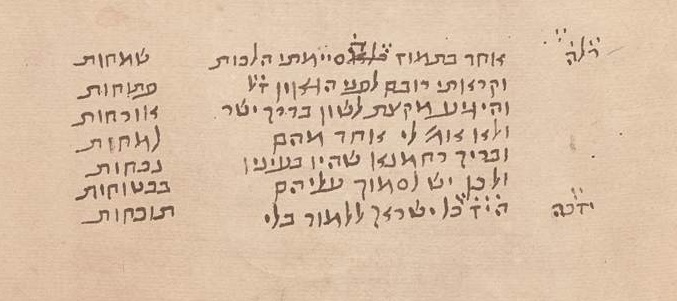 רלה אחד בתמוז סיימתי הלכות שמחות
וקראתי רובם לפני הגאון ז״ל פתוחות
מקצת לשון בדרך ישר אורחות
ולא לי אחד מהם למחות
ובריך רחמנא שהיו בעיניו נכחות
ולכן יש לסמוך עליהם בבטוחות
יזכה כל ישראל ללמוד בלי תוכחות